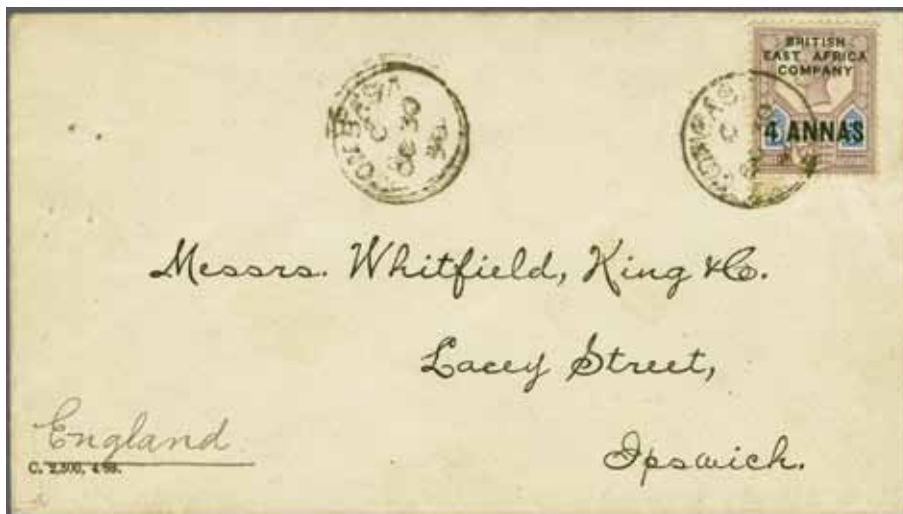 BRITISH
EAST AFRICA
COMPANY
4 ANNAS
MOMBASA
Messrs. Whitfield, King & Co.
Lacey Street,
Ipswich.
England